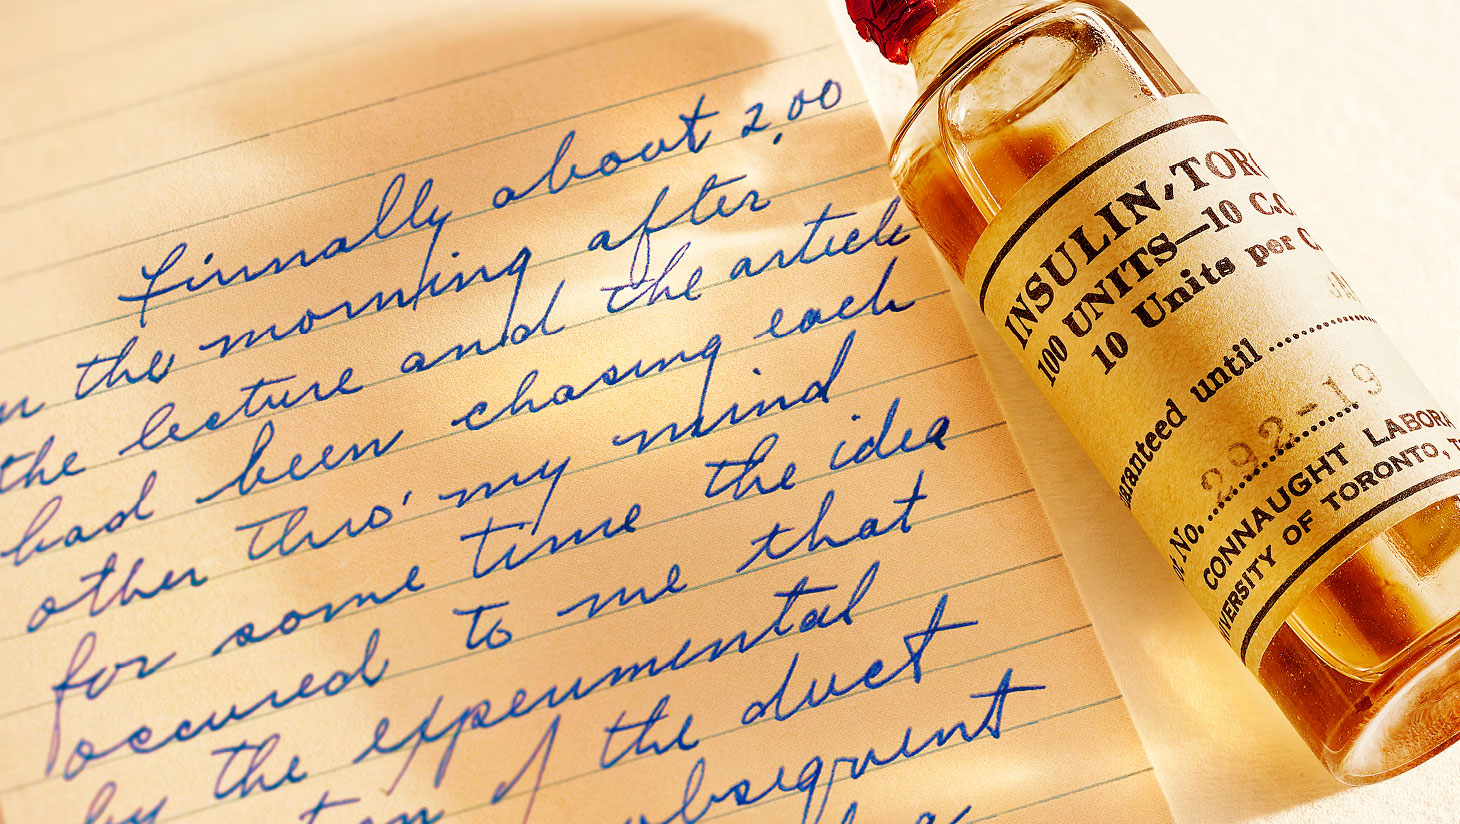 Finnally about 2.00
the morning after
the lecture and the article
had been chasing each
other thro' my mind
for some time the idea
occured to me that
by the experimental
of the duct
INSULIN, TOR
100 UNITS—10 C.C.
10 Units per C.
until
292-19
No.
CONNAUGHT LABORA
UNIVERSITY OF TORONTO,